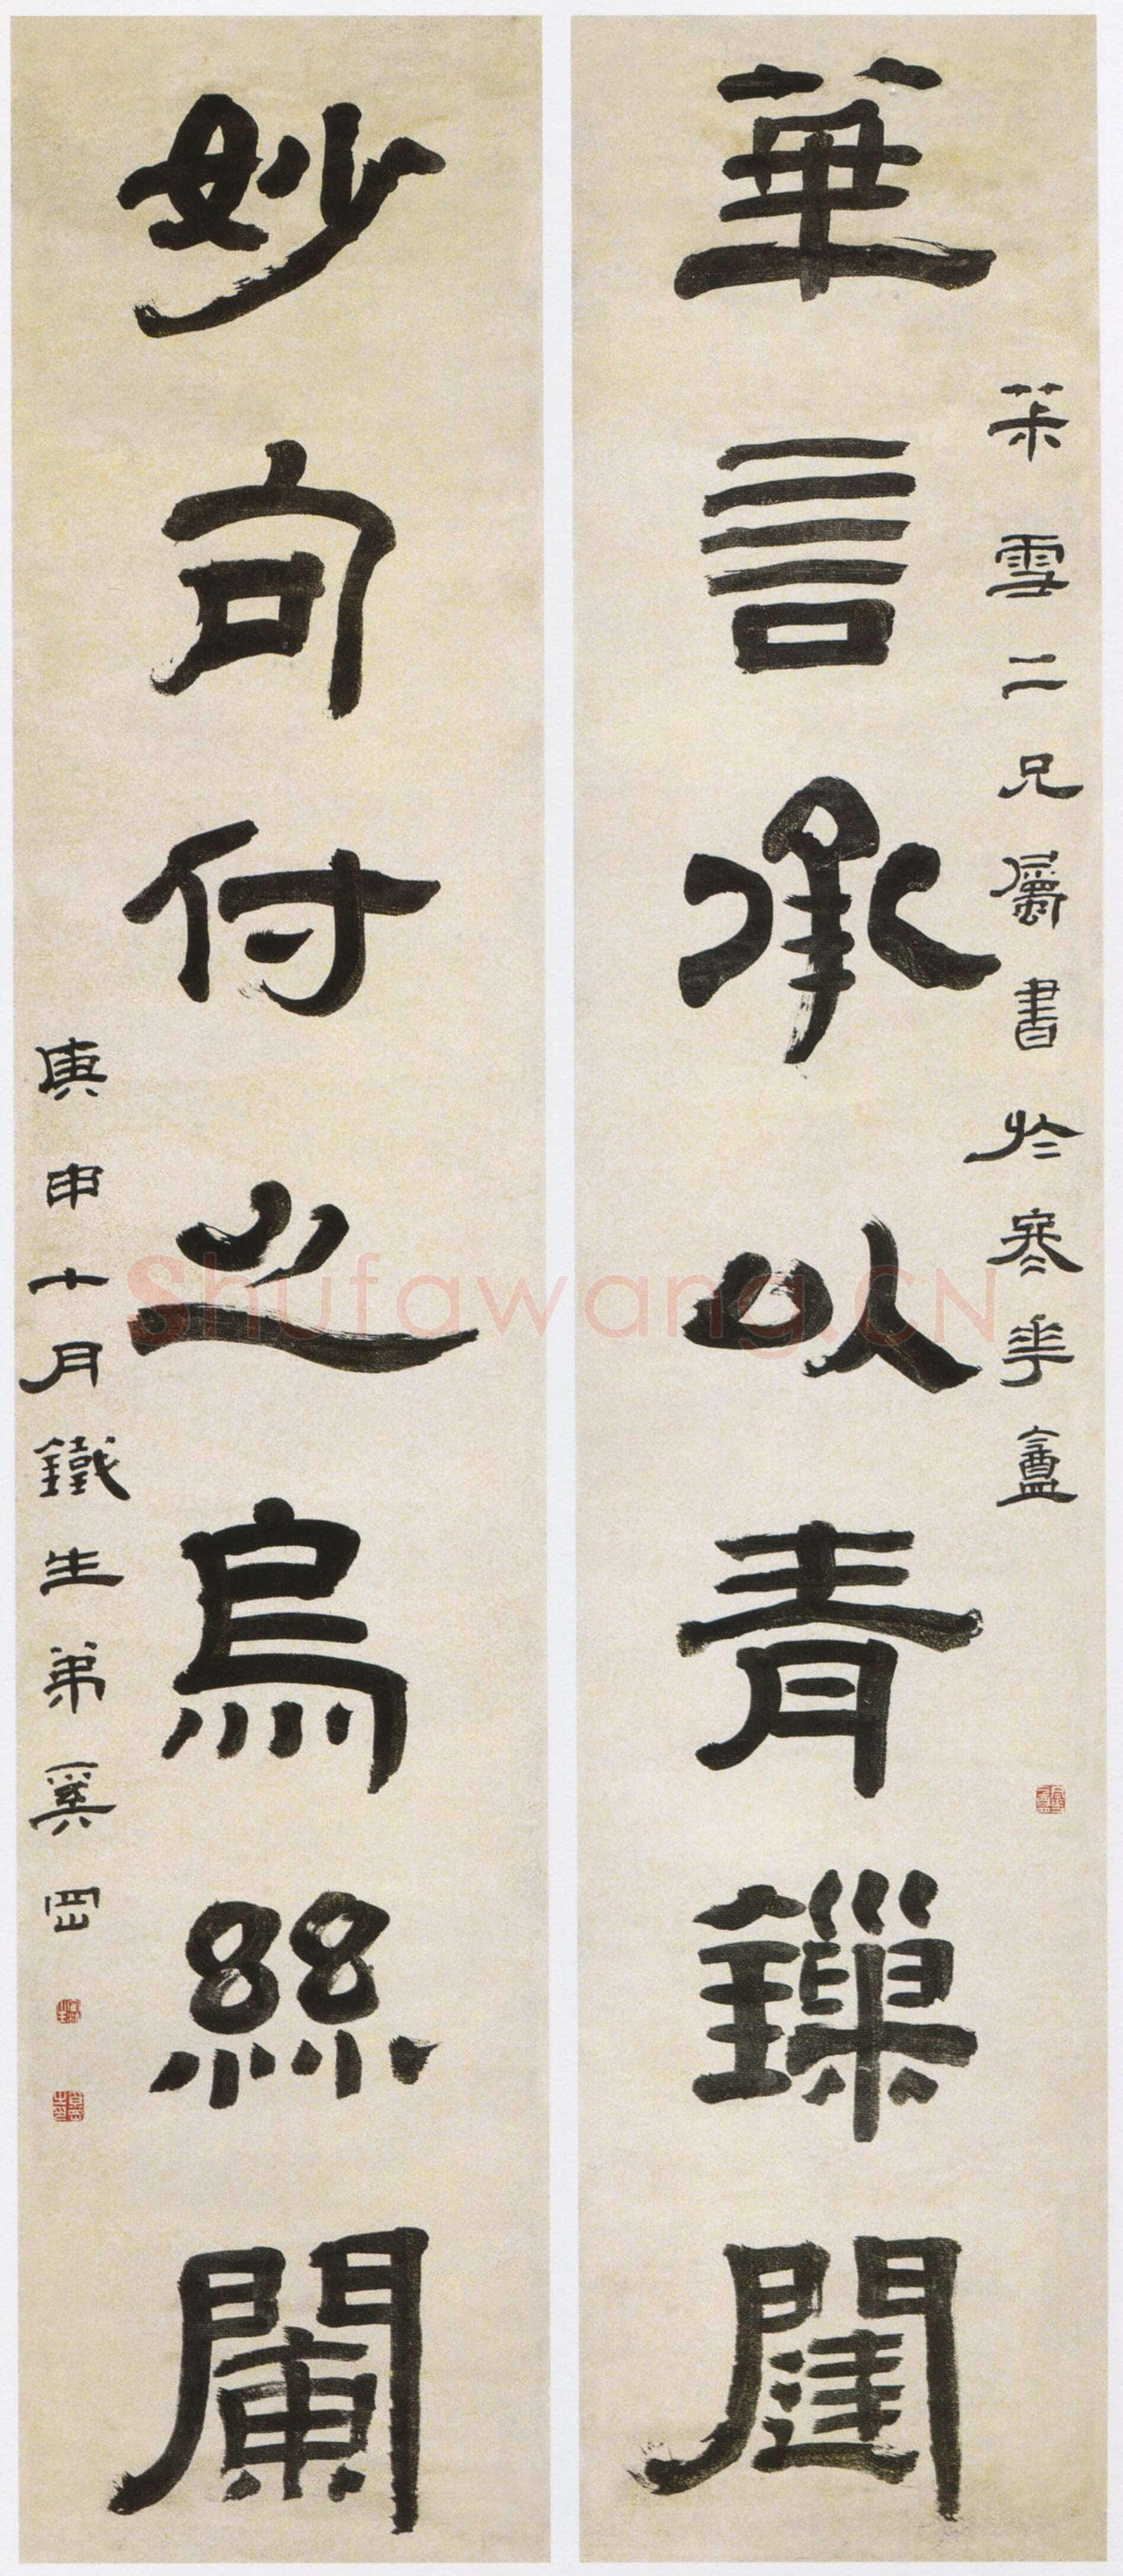 華言承以青鏁闥
茮雪二兄屬書於寒華盦
妙句付之烏絲闌
庚申十月鐵生弟奚岡
Shufawang.CN